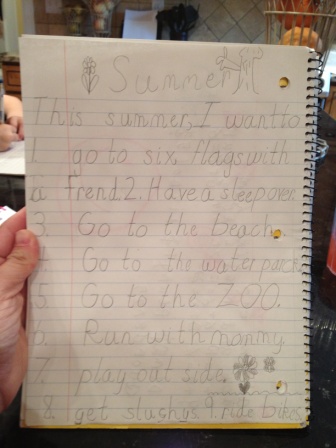 Summer
This summer, I want to
1. go to six flags with
a frend. 2. Have a sleepover.
3. Go to the beach.
4. Go to the water park.
5. Go to the ZOO.
6. Run with mommy
7. play out side.
8. get slushys 9. ride bikes